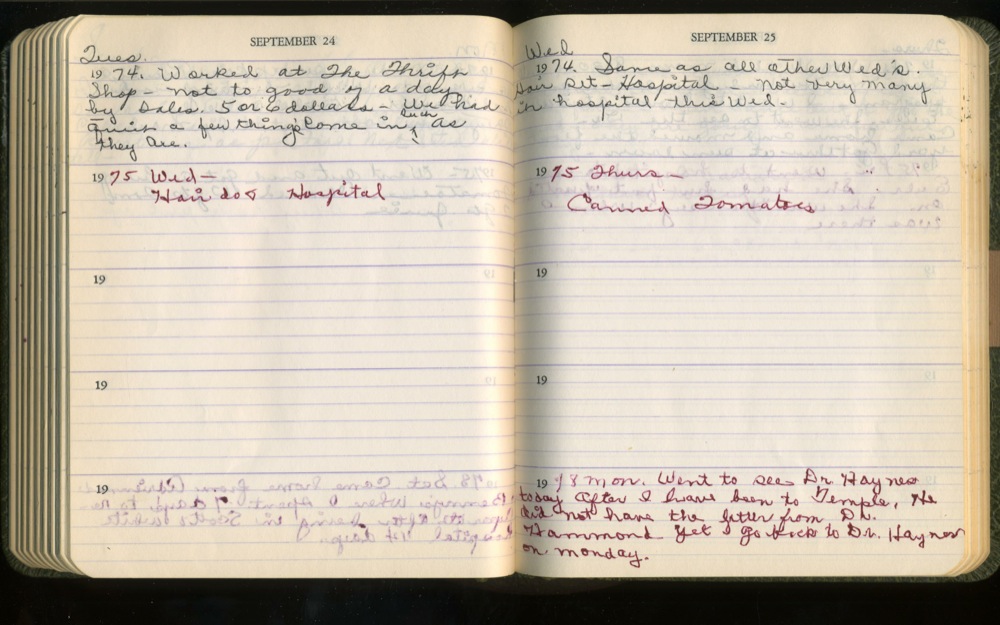 SEPTEMBER 24
Tues.
1974. Worked at The Thrift
Shop - not to good of a day
by Sales 5 or 6 dollars - We had
quite a few things Come in, such as
they are.
1975 Wed -
Hair do & Hospital
19
19
19
SEPTEMBER 25
Wed
1974. Same as all other Wed's.
Hair set - Hospital - not very many
in hospital this Wed.
1975 Thurs -
Canned Tomatoes
19
19
1978 Mon. Went to see Dr Haynes
today after I have been to Temple. He
did not have the letter from Dr.
Hammond yet I go back to Dr. Haynes
on monday.